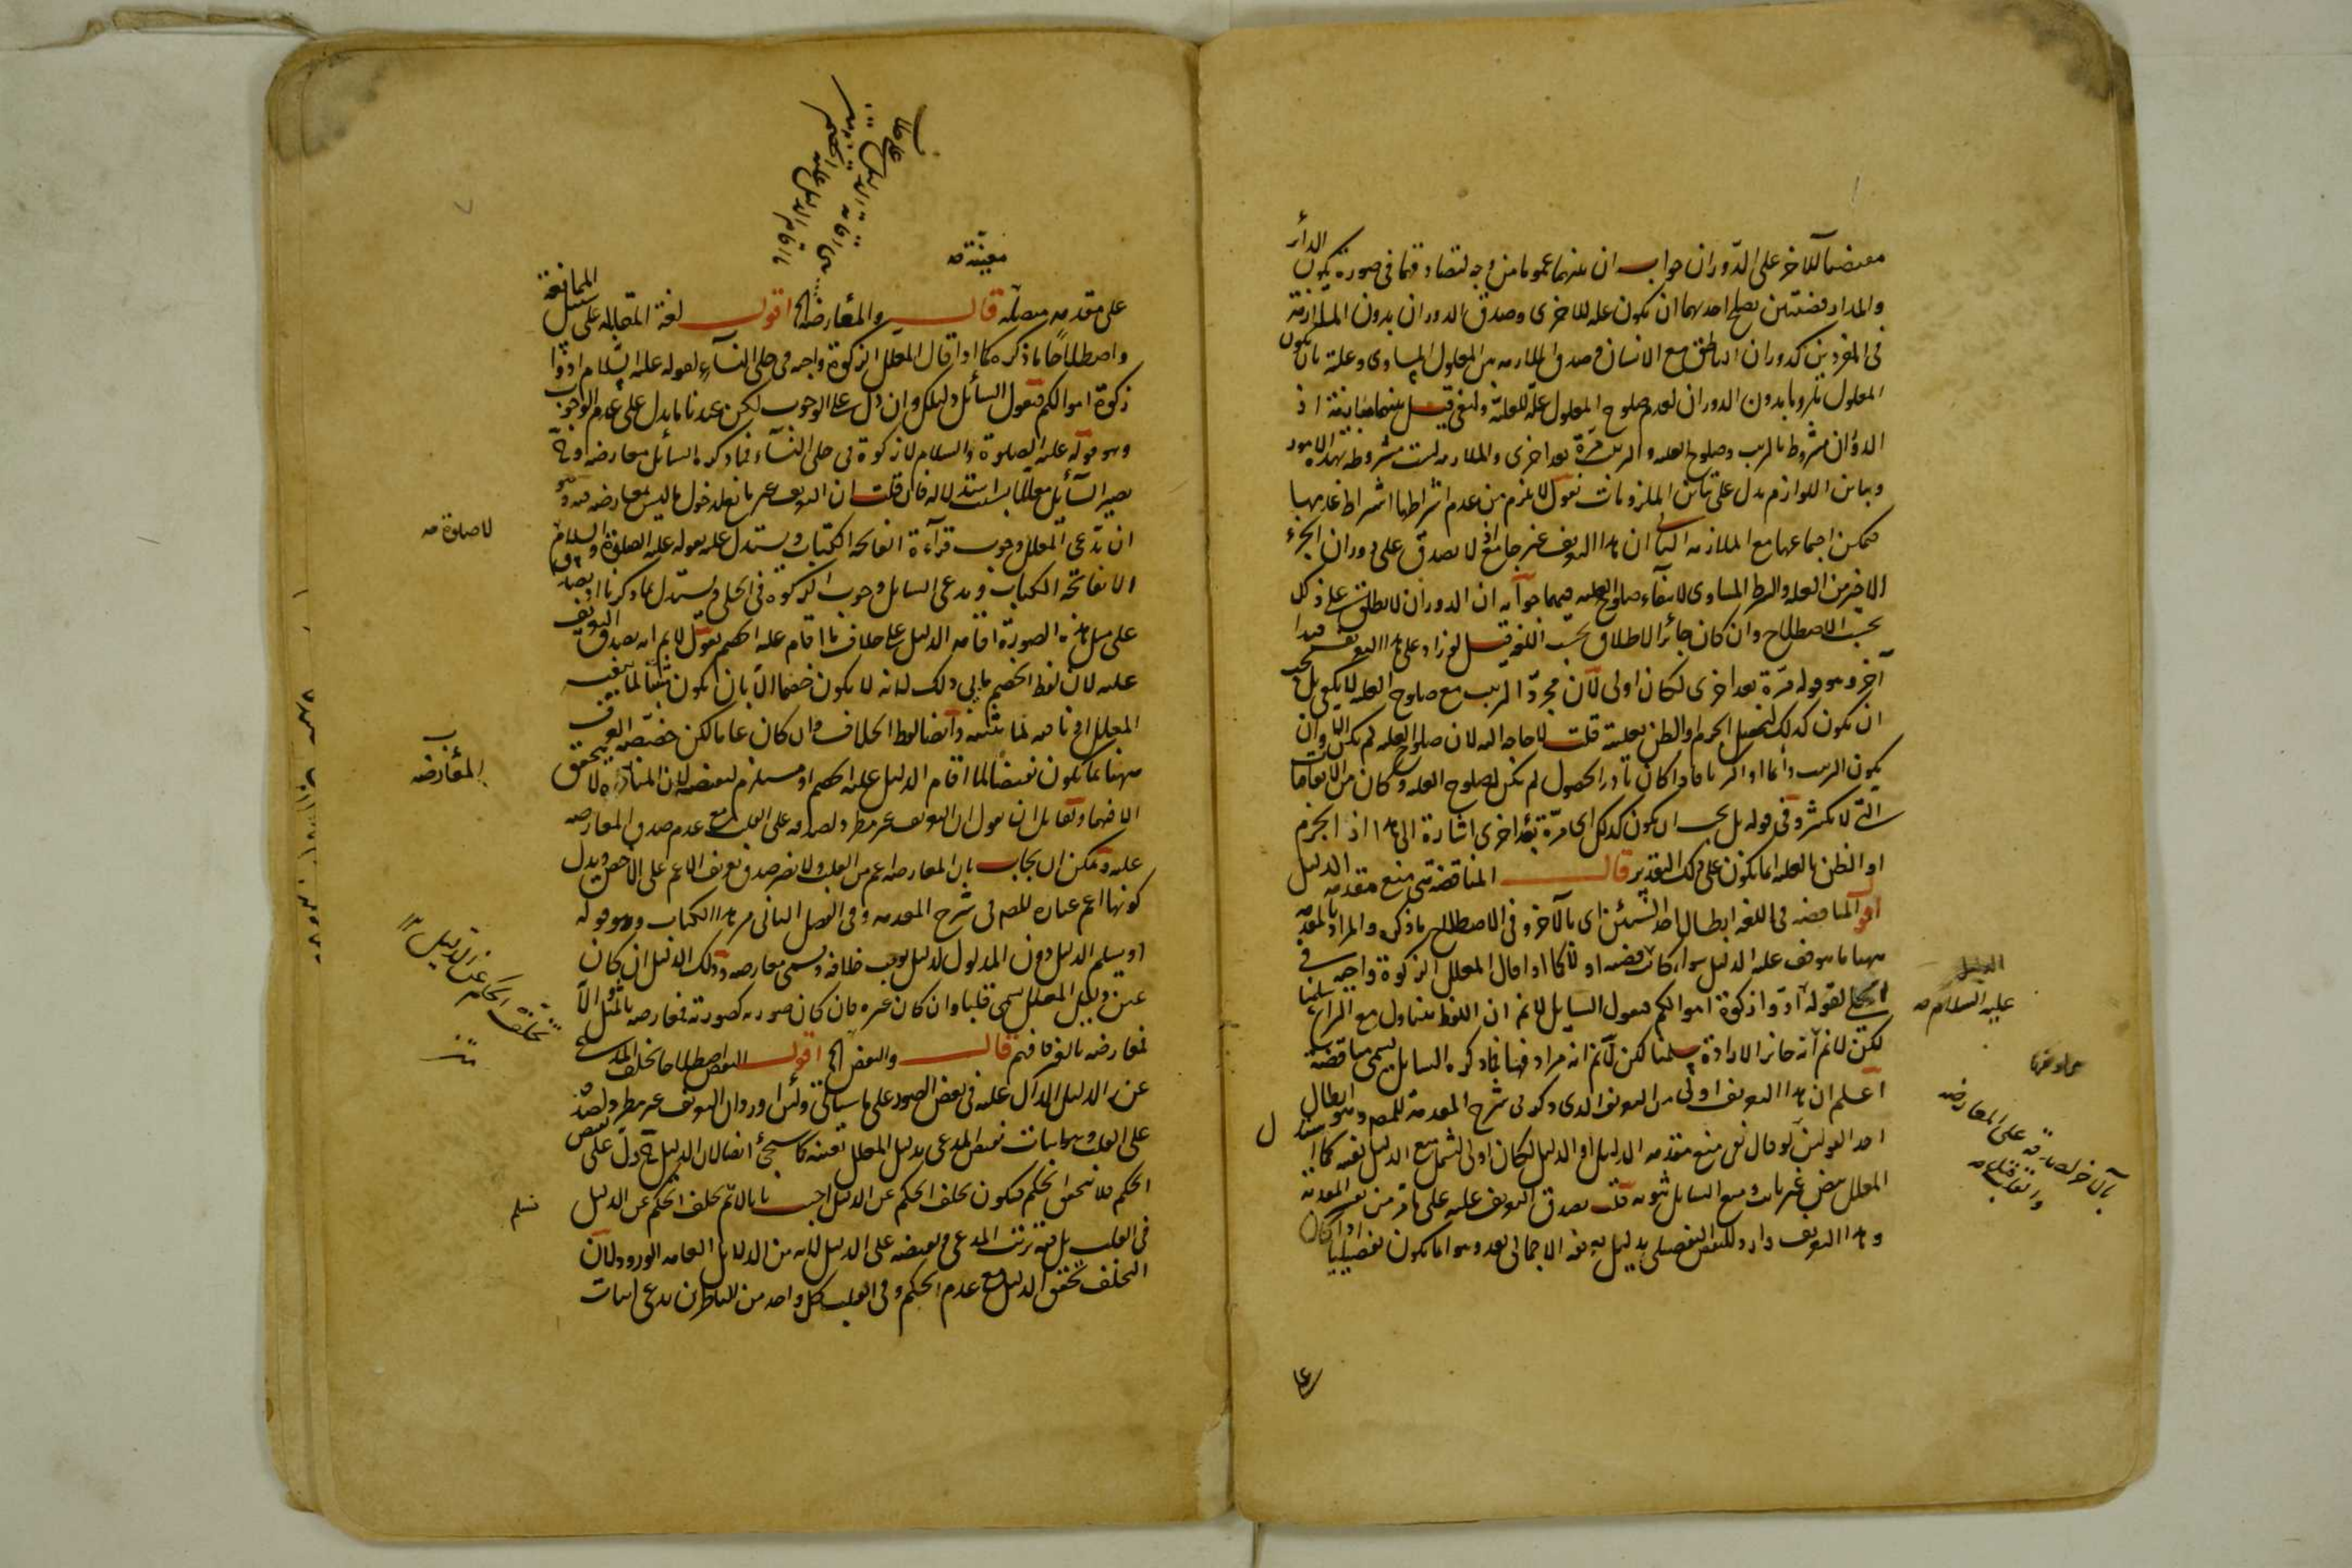 معيضا للآخر على الدوران جواب ان بينهما عموما من وجه لتصادقهما فى صورة يكون الدائر
والمدار قضيتين يصلح احدهما ان يكون علة للاخرى وصدق الدوران بدون الملازمة
فى المفردين كدوران الناطق مع الانسان وصدق الملازمة بين المعلول المساوى وعلته بان يكون
المعلول ملزوما بدون الدوران لعدم صلوح المعلول علة للعلة قيل بينهما مباينة اذ
الدوران مشروط بالترتب وصلوح العلة والترتب مرة بعد اخرى والملازمة ليست مشروطة بهذه الامور
وتباين اللوازم يدل على تباين الملزومات نقول لا يلزم من عدم اشتراطها اشتراط عدمها
فيمكن اجتماعها مع الملازمة الثانى ان هذا التعريف غير جامع اذ لا يصدق على دوران الجزء
الاخير من العلة والشرط المساوى لانتفاء صلوح العلية فيهما جوابه ان الدوران لا يطلق على ذلك
بحسب الاصطلاح وان كان جائز الاطلاق بحسب اللغة قيل لو زاد على هذا التعريف قيدا
آخر وهو قوله مرة بعد اخرى لكان اولى لان مجرد الترتب مع صلوح العلة لا يكفى بل يجب
ان يكون كذلك ليحصل الجزم او الظن بعليته قلت لا حاجة اليه لان صلوح العلية لم يكن الا وان
يكون الترتب دائما او اكثريا فاذا كان نادر الحصول لم يكن لصلوح العلة وكان من الاتفاقيات
التى لا تكثر وفى قوله بل يجب ان يكون كذلك اى مرة بعد اخرى اشارة الى هذا اذ الجزم
او الظن بالعلة انما يكون على ذلك التقدير قال المناقضة هى منع مقدمة الدليل
اقول المناقضة فى اللغة ابطال احد الشيئين اى بالآخر وفى الاصطلاح ما ذكره والمراد بالمقدمة
ههنا ما يتوقف عليه الدليل سواء كانت قضية او لا كما اذا قال المعلل الزكوة واجبة فى
الحلى لقوله ادوا زكوة اموالكم فيقول السائل لا نم ان اللفظ متناول مع المراد سلمنا
لكن لا نم انه جائز الارادة سلمنا لكن لا نم انه مراد فهنا فما ذكره السائل يسمى مناقضة
اعلم ان هذا التعريف اولى من التعريف الذى ذكر فى شرح المقدمة للمصر وهو ابطال
احد القولين لو قال هى منع مقدمة الدليل او الدليل لكان اولى ليشمل منع الدليل نفسه كما اذا
المعلل بنص غير ثابت ومنع السائل ثبوته قلت يصدق التعريف عليه على ما مر من تفسير المقدمة
وهذا التعريف وارد للنقض التفصيلى بدليل تعريفه الاجمالى بعد وهو انما يكون تفصيليا اذا كان
الدليل
عليه السلام صه
بالآخر لصدقه على المعارضة
والقلب صه
على
معينة صه
على مقدمة مفصلة قال والمعارضة الخ اقول لغة المقابلة على سبيل الممانعة
واصطلاحا ما ذكره كما اذا قال المعلل الزكوة واجبة فى حلى النساء لقوله عليه السلام ادوا
زكوة اموالكم فيقول السائل دليلكم وان دل على الوجوب لكن عندنا ما يدل على عدم الوجوب
وهو قوله عليه الصلوة والسلام لا زكوة فى حلى النساء فما ذكره السائل معارضة اوح
يصير السائل معللا باستدلاله فان قلت ان التعريف غير مانع لدخول ما ليس بمعارضة فيه وهو
ان يدعى المعلل وجوب قراءة الفاتحة الكتاب ويستدل عليه بقوله عليه الصلوة والسلام
الا بفاتحة الكتاب ويدعى السائل وجوب الزكوة فى الحلى ويستدل بما ذكرنا اذ يصدق
على مثل هذه الصورة اقامة الدليل على خلاف ما اقام عليه الخصم نقول لا نم انه يصدق التعريف
عليه لان لفظ الخصم يأبى ذلك لانه لا يكون خصما الا بان يكون مثبتا لما ينفيه
المعلل او نافيه لما يثبته وايضا لفظ الخلاف وان كان عاما لكن خصصه العرف
ههنا بما يكون نقيضا لما اقام الدليل عليه الخصم او مستلزم لنقيضه لان المناظرة لا يتحقق
الا فيهما ولقائل ان يقول ان التعريف غير مطرد لصدقه على القلب مع عدم صدق المعارضة
عليه ويمكن ان يجاب بان المعارضة اعم من القلب ولا يضر صدق تعريف الاعم على الاخص ويدل
كونها اعم عبارة للمصر فى شرح المقدمة وفى الفصل الثانى من هذا الكتاب وهو قوله
او يسلم الدليل دون المدلول لدليل يوجب خلافه ويسمى معارضة وذلك الدليل ان كان
عين دليل المعلل يسمى قلبا وان كان غيره فان كان صورته كصورته فمعارضة بالمثل والا
فمعارضة بالغير فافهم قال والنقض الخ اقول النقض اصطلاحا تخلف المدعى
عن الدليل الدال عليه فى بعض الصور على ما سيأتى ولئن اورد ان التعريف غير مطرد لصدقه
على القلب وهو اثبات نقيض المدعى بدليل المعلل بعينه كما سيجئ ايضا لان الدليل ح دل على نقيض
الحكم فلا يتحقق الحكم فيكون تخلف الحكم عن الدليل اجيب بانا لا نم تخلف الحكم عن الدليل
فى القلب بل فيه ترتب المدعى ونقيضه على الدليل لانه من الدلائل العامة الورود لان
التخلف تحقق الدليل مع عدم الحكم وفى القلب كل واحد من المناظرين يدعى اثبات
لا صلوة صه
المعارضة
تخلف الحكم عن الدليل